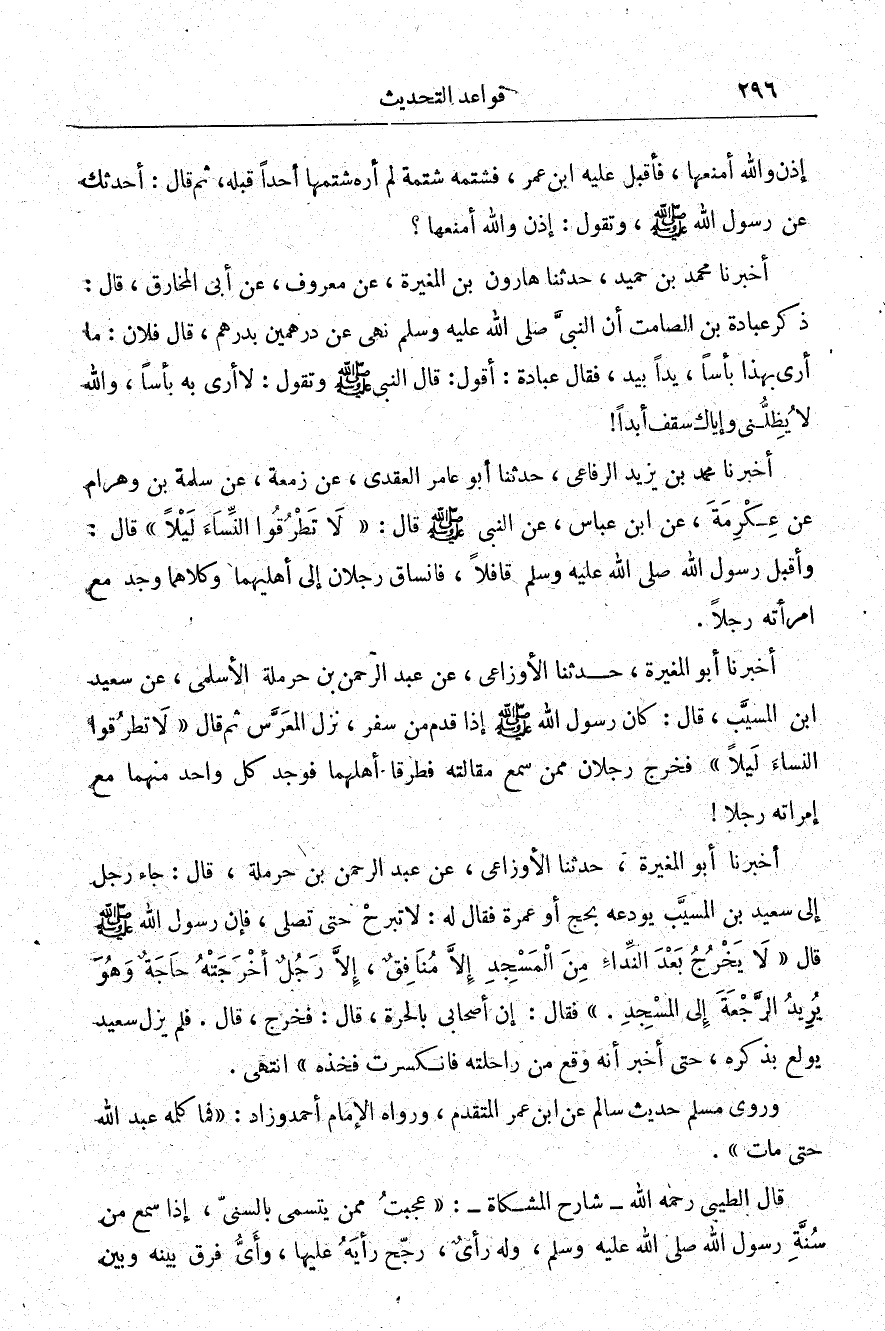 ٢٩٦
قواعد التحديث
إذن والله أمنعها ، فأقبل عليه ابن عمر ، فشتمه شتمة لم أره شتمها أحداً قبله، ثم قال : أحدثك
عن رسول الله ﷺ ، وتقول : إذن والله أمنعها ؟
أخبرنا محمد بن حميد ، حدثنا هارون بن المغيرة ، عن معروف ، عن أبى المخارق ، قال :
ذكر عبادة بن الصامت أن النبيَّ صلى الله عليه وسلم نهى عن درهمين بدرهم ، قال فلان : ما
أرى بهذا بأساً ، يداً بيد ، فقال عبادة : أقول : قال النبى ﷺ وتقول : لا أرى به بأساً ، والله
لا يُظِلُّـنى وإياك سقف أبداً!
أخبرنا محمد بن يزيد الرفاعى ، حدثنا أبو عامر العقدى ، عن زمعة ، عن سلمة بن وهرام
عن عِـكْرِمَةَ ، عن ابن عباس ، عن النبى ﷺ قال : « لَا تَطْرُقُوا النِّسَاءَ لَيْلاً » قال :
وأقبل رسول الله صلى الله عليه وسلم قافلاً ، فانساق رجلان إلى أهليهما وكلاهما وجد مع
امرأته رجلاً .
أخبرنا أبو المغيرة ، حـــدثنا الأوزاعى ، عن عبد الرّحمن بن حرملة الأسلمى ، عن سعيد
ابن المسيَّب ، قال : كان رسول الله ﷺ إذا قدم من سفر ، نزل المعَرَّس ثم قال « لَا تطرُقوا
النساءَ لَيلاً » فخرج رجلان ممن سمع مقالته فطرقا أهلهما فوجد كل واحد منهما مع
إمراته رجلا !
أخبرنا أبو المغيرة ، حدثنا الأوزاعى ، عن عبد الرحمن بن حرملة ، قال : جاء رجل
إلى سعيد بن المسيَّب يودعه بحج أو عمرة فقال له : لا تبرحْ حتى تصلى ، فإن رسول الله ﷺ
قال « لَا يَخْرُجُ بَعْدَ النِّدَاءِ مِنَ الْمَسْجِدِ إِلاَّ مُنَافِقٌ ، إِلاَّ رَجُلٌ أَخْرَجَتْهُ حَاجَةٌ وَهُوَ
يُرِيدُ الرَّجْعَةَ إِلى المَسْجِدِ . » فقال : إن أصحابى بالحرة ، قال : فخرج ، قال . فلم يزل سعيد
يولع بذكره ، حتى أخبر أنه وقع من راحلته فانـكسرت فخذه » انتهى .
وروى مسلم حديث سالم عن ابن عمر المتقدم ، ورواه الإمام أحمد وزاد : « فما كلمه عبد الله
حتى مات » .
قال الطيبى رحمه الله ــ شارح المشـكاة ــ : « عجبتُ ممن يتسمى بالسنىّ ، إذا سمع من
سُنَّةِ رسول الله صلى الله عليه وسلم ، وله رأىٌ ، رجّح رأيَهُ عليها ، وأىُّ فرق بينه وبين